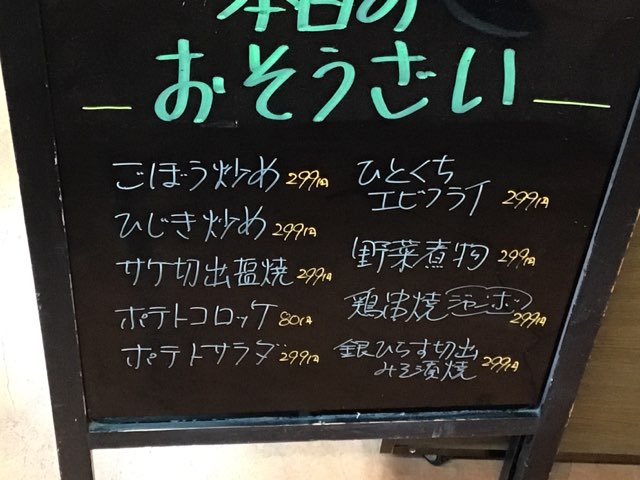 本日の
おそうざい
ごぼう炒め 299円
ひじき炒め 299円
サケ切出塩焼 299円
ポテトコロッケ 80円
ポテトサラダ 299円
ひとくち
エビフライ 299円
野菜煮物 299円
鶏串焼 ジャンボ 299円
銀ひらす切出
みそ漬焼 299円